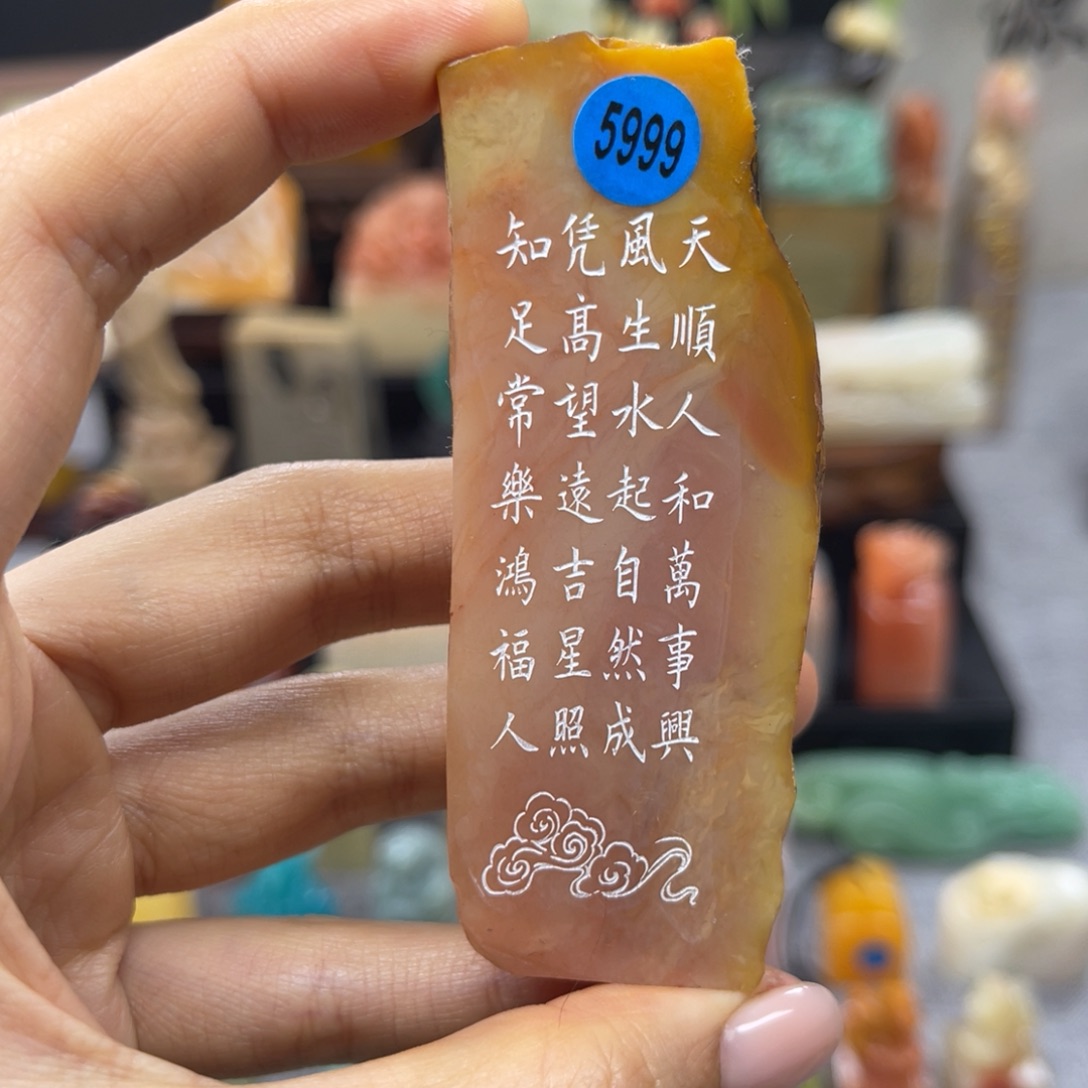 5999
天順人和萬事興
風生水起自然成
凭高望遠吉星照
知足常樂鴻福人